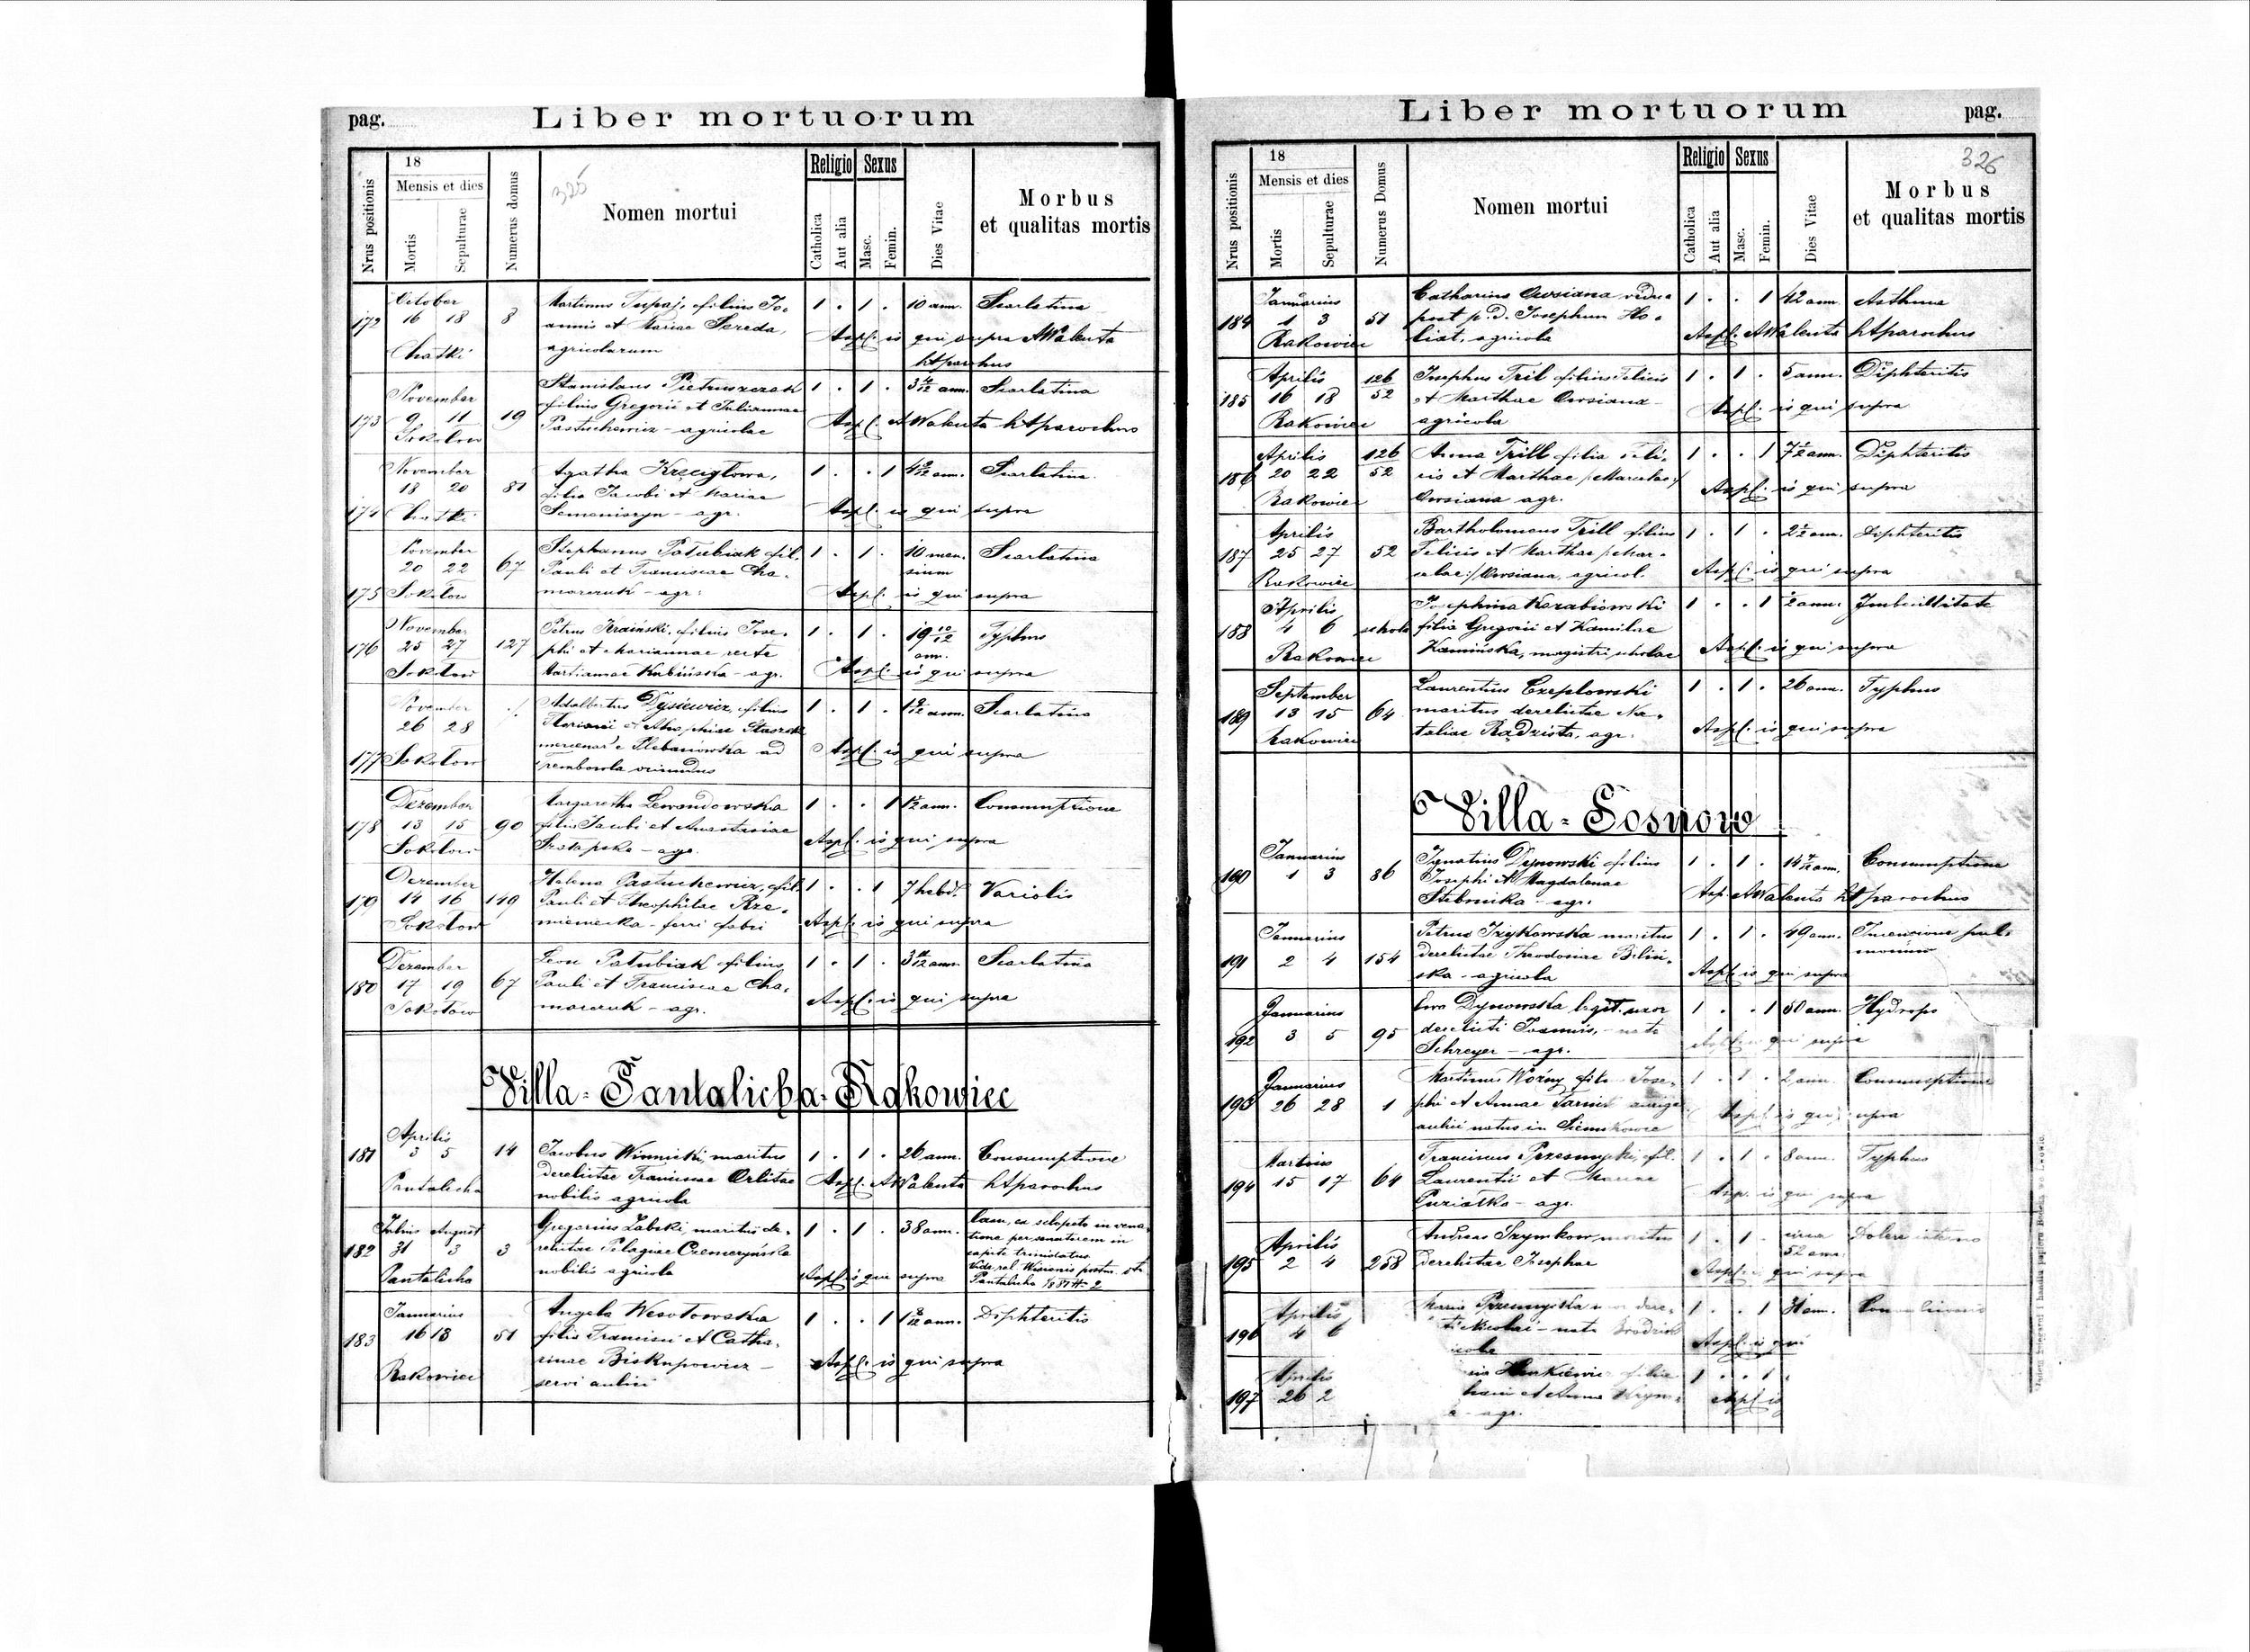 pag.
Liber mortuorum
Nrus positionis
18
Mensis et dies
Mortis
Sepulturae
Numerus domus
325
Nomen mortui
Religio
Catholica
Aut alia
Sexus
Masc.
Femin.
Dies Vitae
Morbus
et qualitas mortis
172
October
16 18
Chatki
8
Martinus Tupaj, filius Jo-
annis et Mariae Szreda,
agricolarum
1 . 1 .
10 ann.
Scarlatina
Aspl. is qui supra AWalenta
ltparochus
173
November
9 11
Sokołow
19
Stanislaus Pietruszczak
filius Gregorii et Juliannae
Pastuchewicz - agricolae
1 . 1 .
3 4/12 ann.
Scarlatina
Aspl. AWalenta ltparochus
174
November
18 20
Chatki
81
Agatha Kręcigłowa,
filia Jacobi et Mariae
Semeniszyn - agr.
1 . . 1
ann.
Scarlatina
Aspl. is qui supra
175
November
20 22
Sokołow
67
Stephanus Patubiak fil.
Pauli et Franciscae Cha-
marczuk - agr.
1 . 1 .
10 men-
sium
Scarlatina
Aspl. is qui supra
176
November
25 27
Sokołow
127
Petrus Kraiński, filius Jose-
phi et Mariannae recte
Martiannae Kubińska - agr.
1 . 1 .
19 10/12
ann.
Typhus
Aspl. is qui supra
177
November
26 28
Sokołow
Adalbertus Dysiewicz, filius
1 . 1 .
ann.
Scarlatina
Aspl. is qui supra
178
Dezember
13 15
Sokołow
90
Margaretha Lewandowska
filia Jacobi et Anastasiae
agr.
1 . . 1
ann.
Consumptione
Aspl. is qui supra
179
Dezember
14 16
Sokołow
119
Helena Pastuchewicz, fil.
Pauli et Theophilae Rze-
mieniecka - ferri fabri
1 . . 1
7 hebd.
Variolis
Aspl. is qui supra
180
Dezember
17 19
Sokołow
67
Leon Patubiak filius
Pauli et Franciscae Cha-
marczuk - agr.
1 . 1 .
ann.
Scarlatina
Aspl. is qui supra
Villa - Pantalicha - Rakowiec
181
Aprilis
3 5
Pantalicha
14
Jacobus Winnicki, maritus
derelictae Franciscae Orlitae
nobilis agricola
1 . 1 .
26 ann.
Consumptione
Aspl. AWalenta ltparochus
182
Julius August
31 3
Pantalicha
3
Gregorius Zabski, maritus de-
relictae Pelagiae Czemeryńska
nobilis agricola
1 . 1 .
38 ann.
Casu, ex sclopeto in vena-
tione per venatorem in
capite trucidatus
Aspl. is qui supra
183
Januarius
16 18
Rakowiec
51
Angela Wesołowska
filia Francisci et Catha-
rinae Biskupowicz -
servi aulici
1 . . 1
1 8/12 ann.
Diphteritis
Aspl. is qui supra
Liber mortuorum
pag.
Nrus positionis
18
Mensis et dies
Mortis
Sepulturae
Numerus Domus
Nomen mortui
Religio
Catholica
Aut alia
Sexus
Masc.
Femin.
Dies Vitae
326
Morbus
et qualitas mortis
184
Januarius
1 3
Rakowiec
51
Catharina Owsiana vidua
post p. d. Josephum Ho-
liat, agricola
1 . . 1
42 ann.
Asthma
Aspl. AWalenta ltparochus
185
Aprilis
16 18
Rakowiec
126
52
Josephus Tril filius Felicis
et Marthae Owsiana -
agricola
1 . 1 .
5 ann.
Diphteritis
Aspl. is qui supra
186
Aprilis
20 22
Rakowiec
126
52
Anna Trill filia Feli-
cis et Marthae
Owsiana agr.
1 . . 1
ann.
Diphteritis
Aspl. is qui supra
187
Aprilis
25 27
Rakowiec
52
Bartholomeus Trill filius
Felicis et Marthae
Owsiana, agricol.
1 . 1 .
ann.
Diphteritis
Aspl. is qui supra
188
Aprilis
4 6
Rakowiec
schola
Josephina Karabiowski
filia Gregorii et Kamilae
Kamińska, magistri scholae
1 . . 1
ann.
Imbecillitate
Aspl. is qui supra
189
September
13 15
Rakowiec
64
Laurentius Czeplowski
maritus derelictae Na-
taliae Radzista, agr.
1 . 1 .
26 ann.
Typhus
Aspl. is qui supra
Villa - Sosnow
190
Januarius
1 3
86
Ignatius Dynowski filius
Josephi et Magdalenae
Stebnika - agr.
1 . 1 .
ann.
Consumptione
Asp. AWalenta ltparochus
191
Januarius
2 4
154
Petrus Irzykowska maritus
derelictae Theodosiae Biliń-
ska - agricola
1 . 1 .
49 ann.
pul-
monum
Aspl. is qui supra
192
Januarius
3 5
95
Ewa Dynowska legit. uxor
derelicti Joannis, - nata
Schreyer - agr.
1 . . 1
50 ann.
Hydrops
qui supra
193
Januarius
26 28
1
Martinus Woźny Jose-
phi et Annae
aulici natus in Siemikowce
1 . 1 .
2 ann.
Consumptione
Aspl. is qui supra
194
Martius
15 17
64
Franciscus Przesmycki, fil.
Laurentii et
agr.
1 . 1 .
8 ann.
Typhus
Asp. is qui supra
195
Aprilis
2 4
258
Andreas Szymkow maritus
derelictae Josephae
1 . 1 .
circa
52 ann.
Dolore interno
Aspl. qui supra
196
Aprilis
4 6
Maria
Nicolai - nata
1 . . 1
31 ann.
Aspl. is qui
197
Aprilis
26 2
et Anna
agr.
1 . . 1
Aspl. is